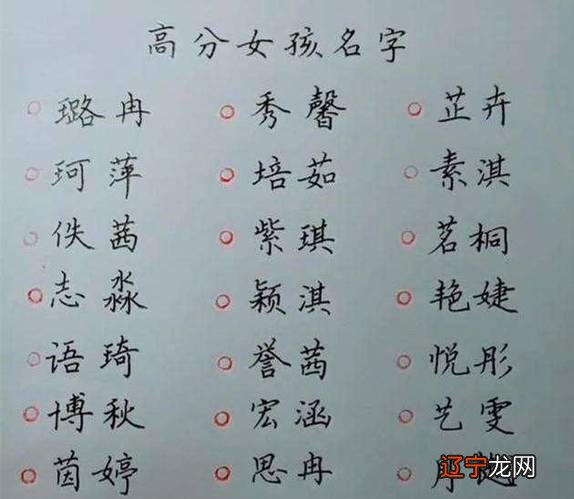 高分女孩名字
璐冉 秀馨 芷卉
珂萍 培茹 素淇
佚茜 紫琪 茗桐
志淼 颖淇 艳婕
语琦 誉茜 悦彤
博秋 宏涵 艺雯
茵婷 思冉 月
辽宁龙网